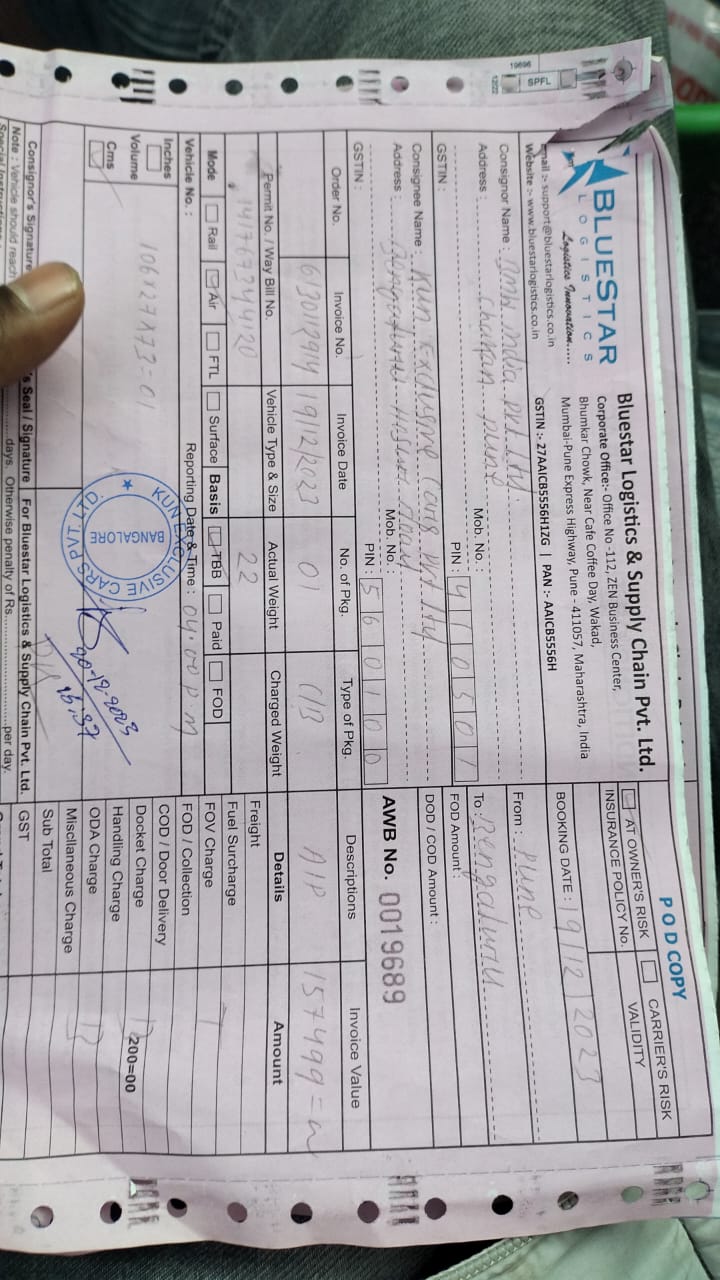 POD COPY
BLUESTAR
LOGISTICS
Logistics Innovation.....
Email :- support@bluestarlogistics.co.in
Website :- www.bluestarlogistics.co.in
Bluestar Logistics & Supply Chain Pvt. Ltd.
Corporate Office:- Office No -112, ZEN Business Center,
Bhumkar Chowk, Near Cafe Coffee Day, Wakad,
Mumbai-Pune Express Highway, Pune - 411057, Maharashtra, India
GSTIN :- 27AAICB5556H1ZG | PAN :- AAICB5556H
AT OWNER'S RISK CARRIER'S RISK
INSURANCE POLICY No. VALIDITY
BOOKING DATE : 19/12/2023
From : Pune
To : Bengaluru
FOD Amount :
DOD / COD Amount :
AWB No. 0019689
Consignor Name : BMW india pvt lty.
Address : Chakan pune
Mob. No. :
PIN : 410501
GSTIN :
Consignee Name : Kun Exclusive Cars pvt lty
Address : Bengaluru Hosur
Mob. No. :
PIN : 560100
GSTIN :
Order No. Invoice No. Invoice Date No. of Pkg. Type of Pkg. Descriptions Invoice Value
6130112914 19/12/2023 01 C/B A/P 157499=
Permit No. / Way Bill No. Vehicle Type & Size Actual Weight Charged Weight Details Amount
141767344120 22
Mode Rail Air FTL Surface Basis TBB Paid FOD
Vehicle No. : Reporting Date & Time : 04.00 P.M
Inches
Volume
Cms
106x27x73=01
KUN EXCLUSIVE CARS PVT. LTD.
BANGALORE
20-12-2023
15:37
Freight
Fuel Surcharge
FOV Charge
FOD / Collection
COD / Door Delivery
Docket Charge 200=00
Handling Charge
ODA Charge
Miscllaneous Charge
Sub Total
GST
Consignor's Signature 's Seal / Signature For Bluestar Logistics & Supply Chain Pvt. Ltd.
Note : Vehicle should reach days. Otherwise penalty of Rs. per day.
19696 SPFL 12/22